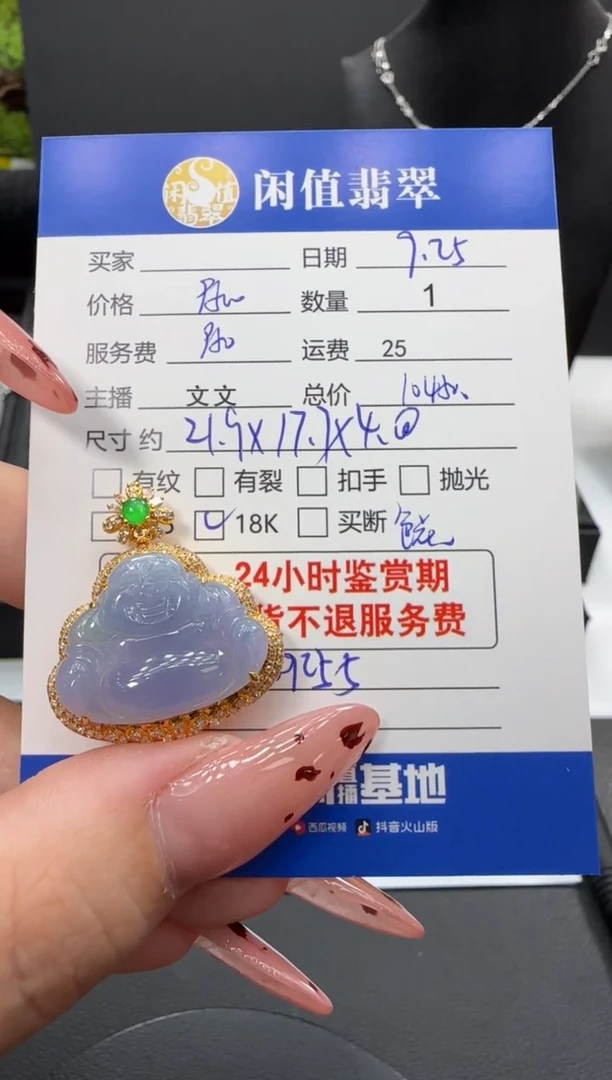 闲值翡翠
闲值翡翠
买家 日期 9.25
价格 数量 1
服务费 运费 25
主播 文文 总价
尺寸 约 21.9X17.7X4.0
有纹 有裂 扣手 抛光
18K 买断
24小时鉴赏期
货不退服务费
9255
播基地
西瓜视频 抖音火山版